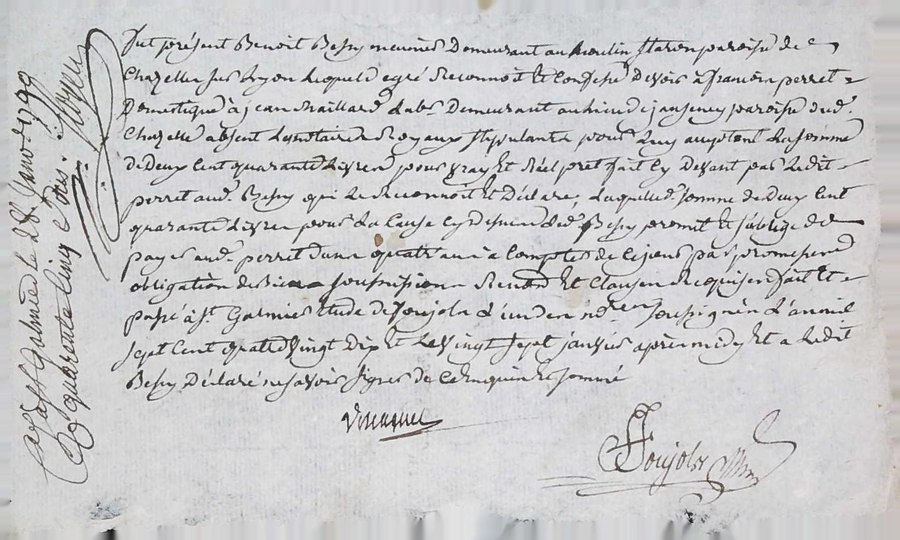 fut présent Benoit Bessy meunier Demeurant au moulin paroisse de
Chazelles sur Lyon Lequel de gré Reconnoit Et Confesse Devoir à francois perret
Domestique à jean Demeurant au paroisse dud.
Chazelle absent Les notaires Royaux stipulants pour Luy acceptant La somme
de Deux Cent quarante Livres pour vray Et Réel pret fait Cy Devant par Ledit
perret aud. Bessy qui Le Reconnoit Et Déclare, Laquelle somme de Deux Cent
quarante Livres pour La Cause cy dessus led. Bessy promet Et s'oblige de
payer aud. perret dans quatre ans à Compter de Ce jour par promesse
obligation de Biens soumissions Renond. Et Clauses Requises fait Et
passé à St. Galmier Etude de Soujols L'un des no.res soussignés L'an mil
sept Cent quatre vingt Dix Et Le vingt sept janvier après midy Et a Ledit
Bessy Déclaré ne savoir signer de Ce Enquis Et sommé
Soujols
Galmier le 28 janv. 1790
quarante cinq